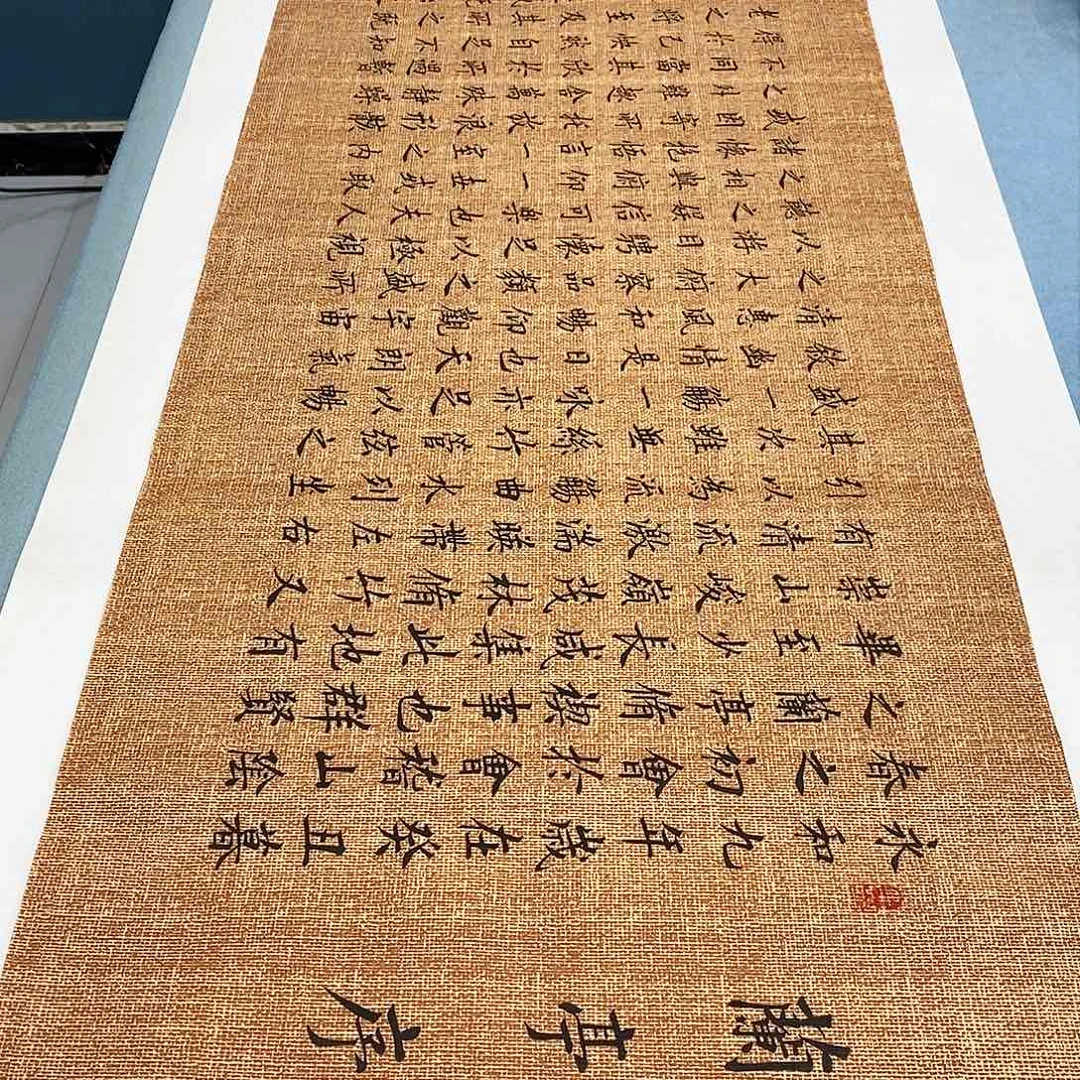 蘭亭序
永和九年歲在癸丑暮
春之初會於會稽山陰
之蘭亭脩禊事也群賢
畢至少長咸集此地有
崇山峻嶺茂林脩竹又
有清流激湍暎帶左右
引以為流觴曲水列坐
其次雖無絲竹管弦之
盛一觴一咏亦足以暢
敘幽情是日也天朗氣
清惠風和暢仰觀宇宙
之大俯察品類之盛所
以游目騁懷足以極視
聽之娛信可樂也夫人
之相與俯仰一世或取
諸懷抱悟言一室之內
或因寄所託放浪形骸
之外雖趣舍萬殊靜躁
不同當其欣於所遇暫
得於己快然自足不知
老之將至及其所之